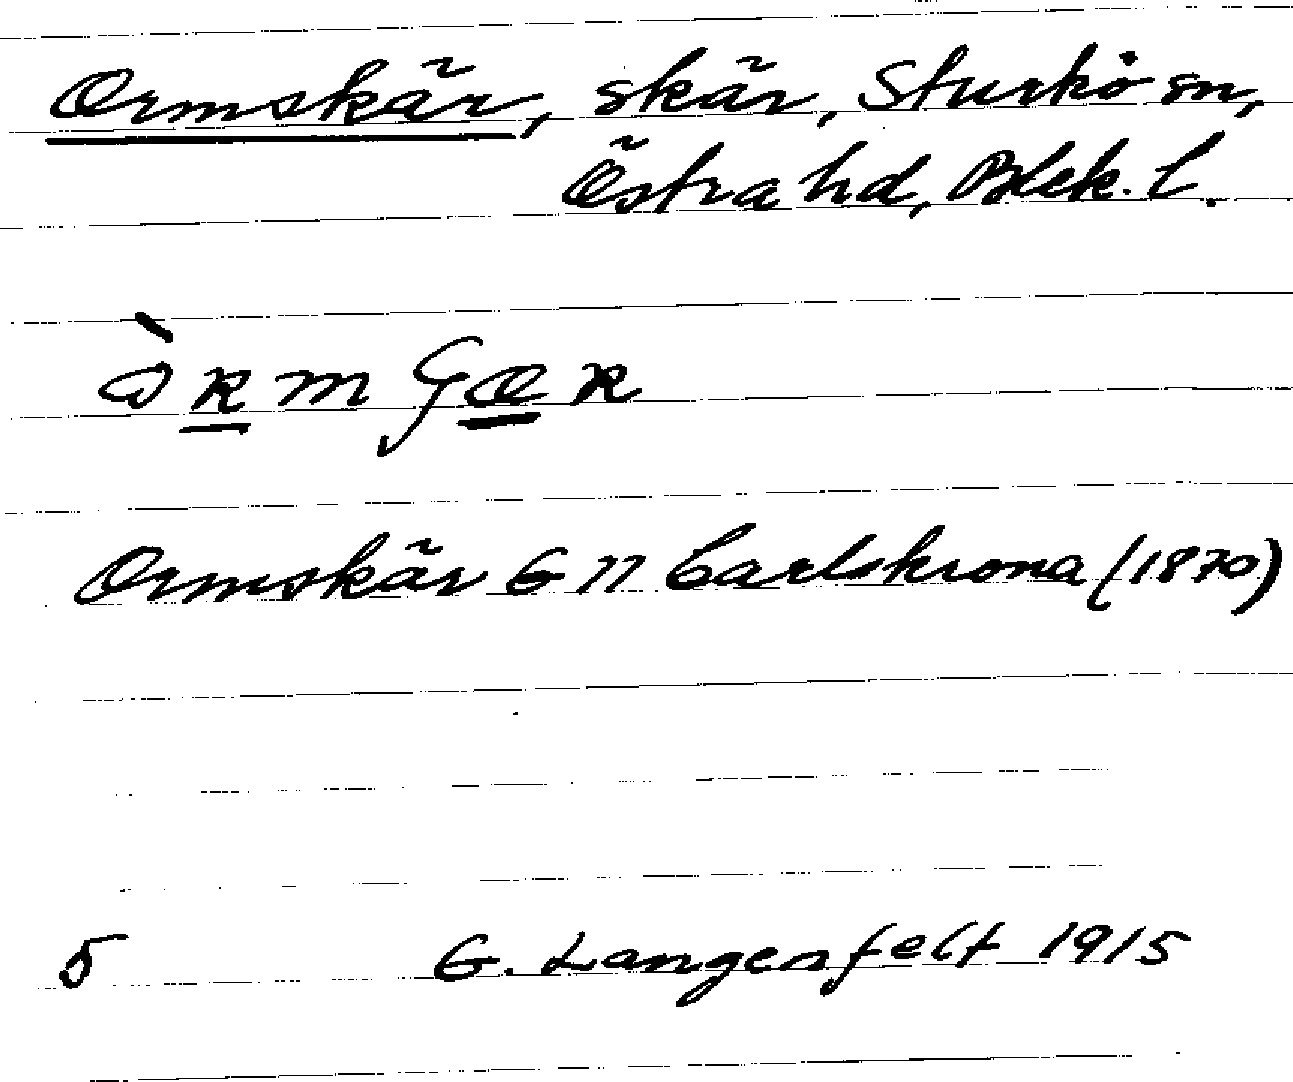 Ormskär, skär, Sturkö sn,
Östra hd, Blek. l.
Ormskär G N Carlskrona (1870)
5 G. Langenfelt 1915